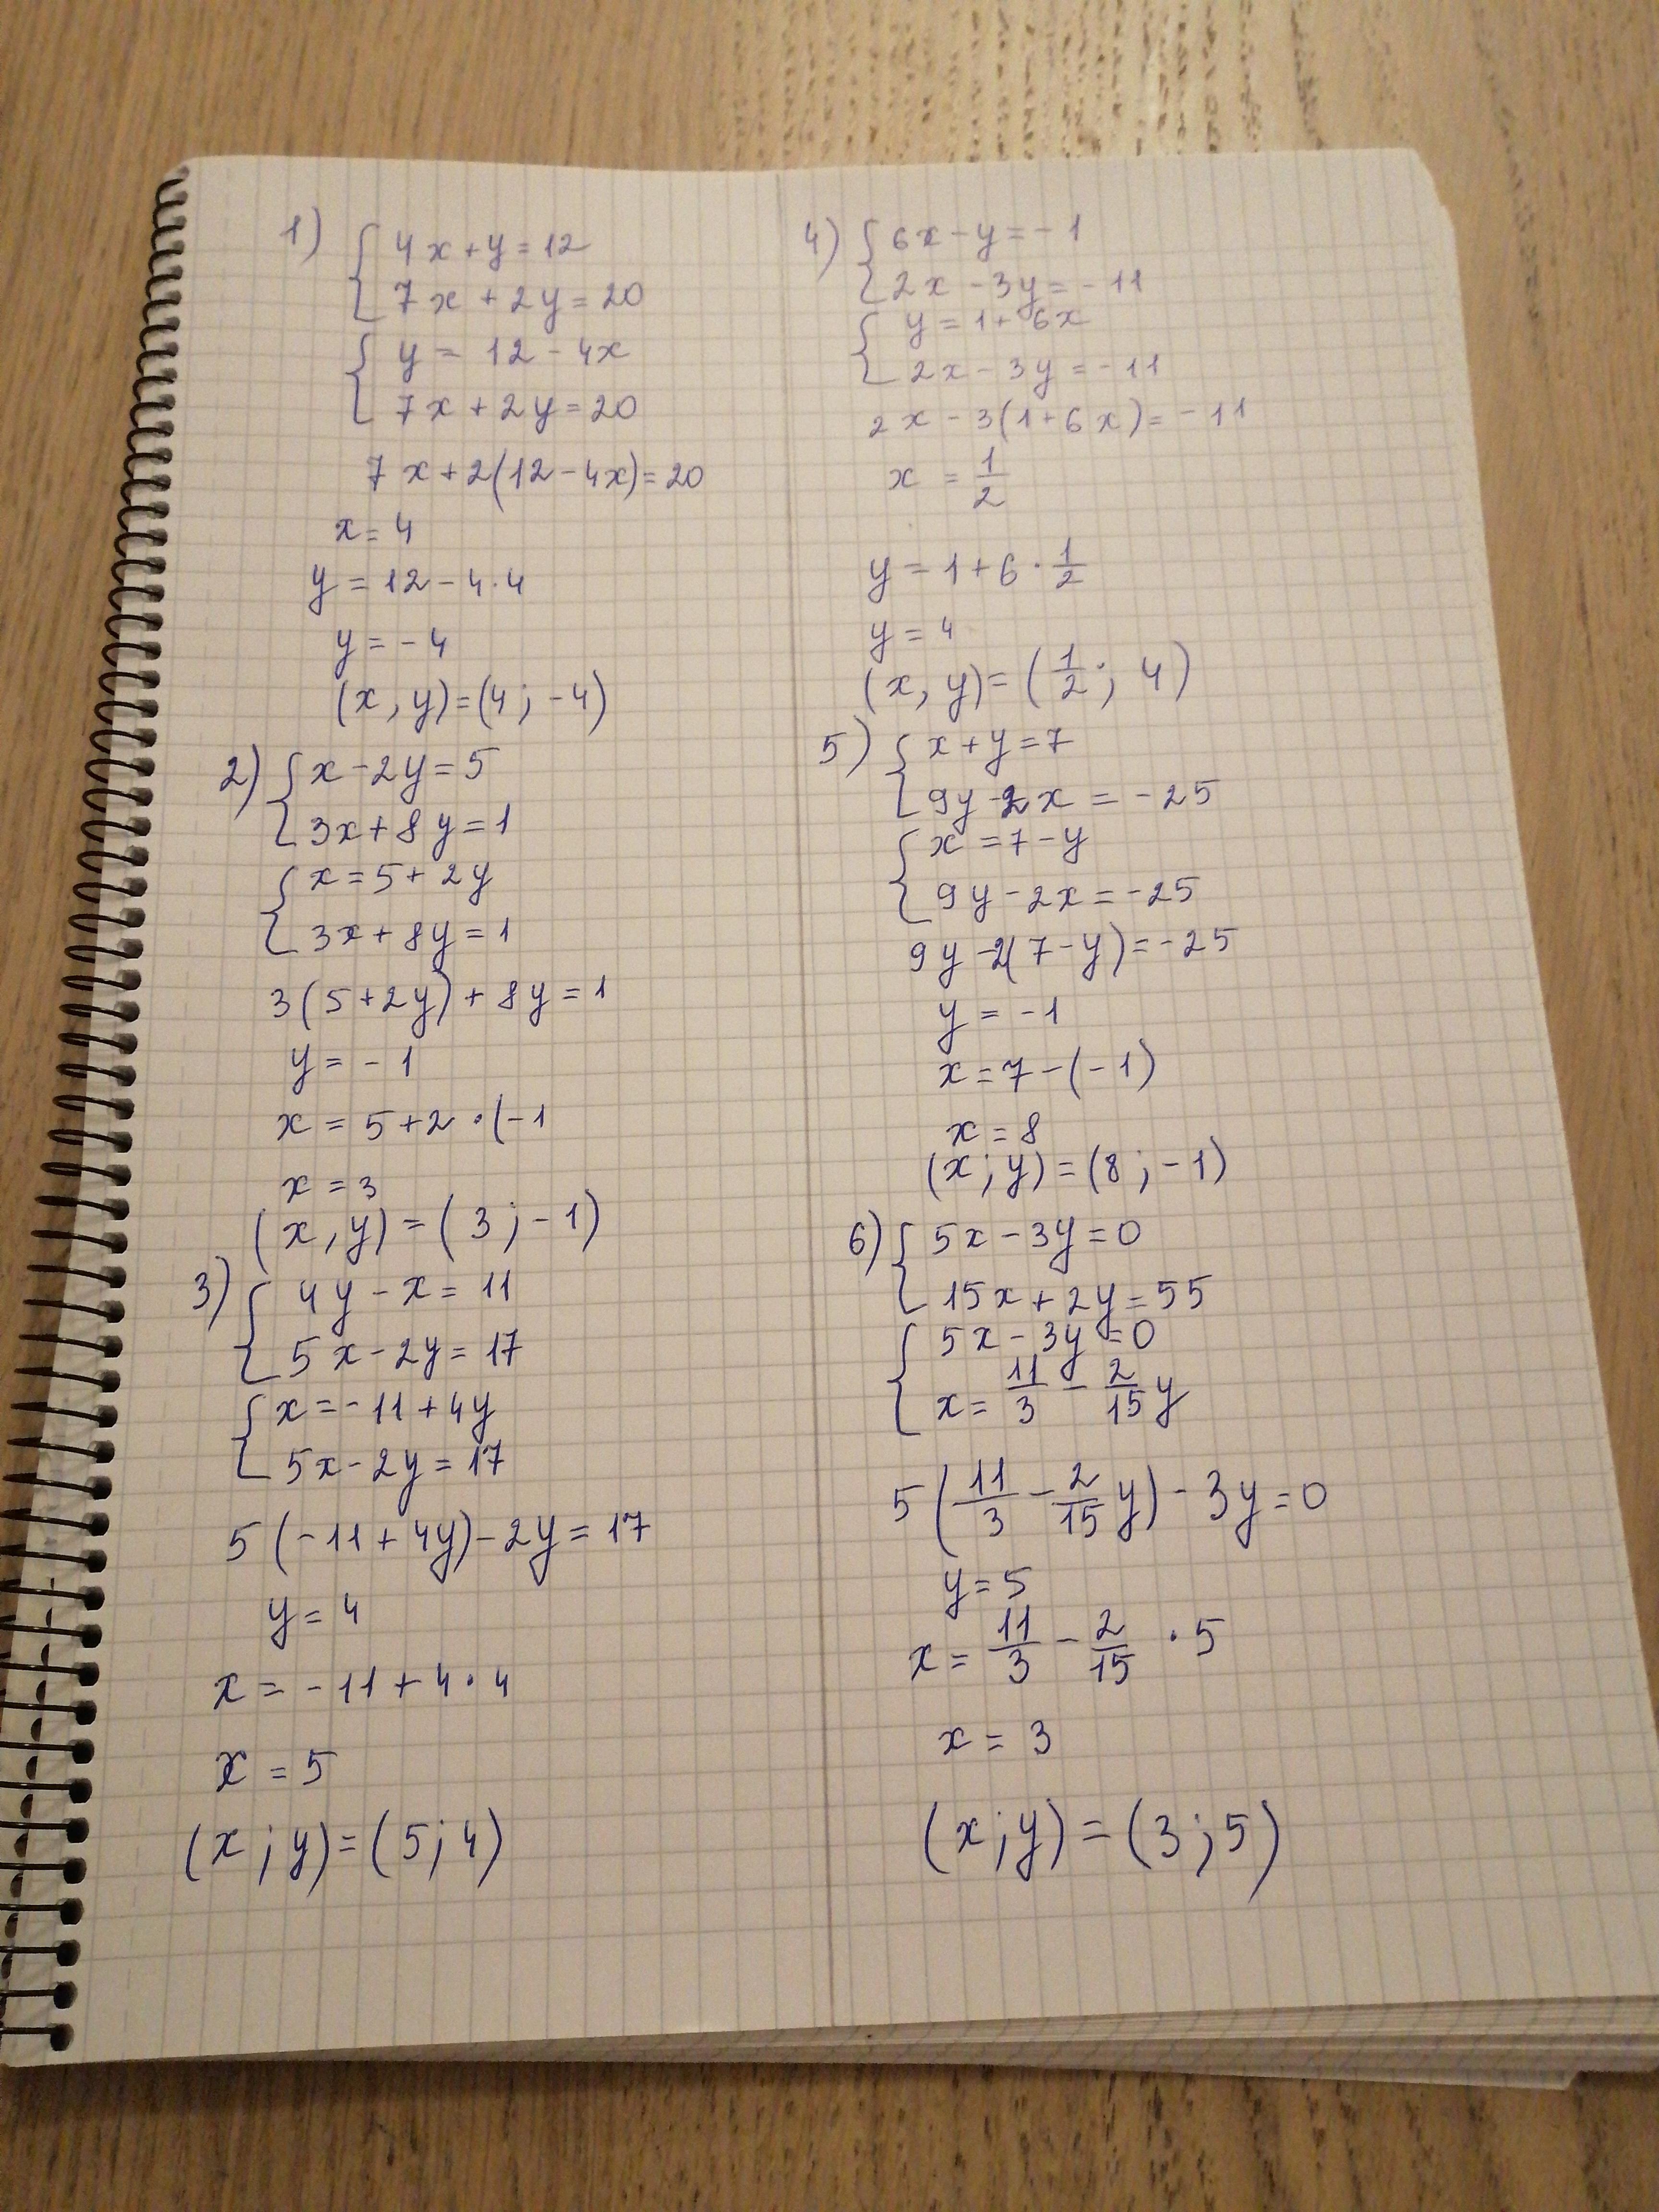 1) { 4x+y=12
7x+2y=20
{ y=12-4x
7x+2y=20
7x+2(12-4x)=20
x=4
y=12-4·4
y=-4
(x,y)=(4;-4)
2) { x-2y=5
3x+8y=1
{ x=5+2y
3x+8y=1
3(5+2y)+8y=1
y=-1
x=5+2·(-1
x=3
(x,y)=(3;-1)
3) { 4y-x=11
5x-2y=17
{ x=-11+4y
5x-2y=17
5(-11+4y)-2y=17
y=4
x=-11+4·4
x=5
(x;y)=(5;4)
4) { 6x-y=-1
2x-3y=-11
{ y=1+6x
2x-3y=-11
2x-3(1+6x)=-11
x=1/2
y=1+6·1/2
y=4
(x,y)=(1/2; 4)
5) { x+y=7
9y-2x=-25
{ x=7-y
9y-2x=-25
9y-2(7-y)=-25
y=-1
x=7-(-1)
x=8
(x;y)=(8;-1)
6) { 5x-3y=0
15x+2y=55
{ 5x-3y=0
x=11/3-2/15y
5(11/3-2/15y)-3y=0
y=5
x=11/3-2/15·5
x=3
(x;y)=(3;5)